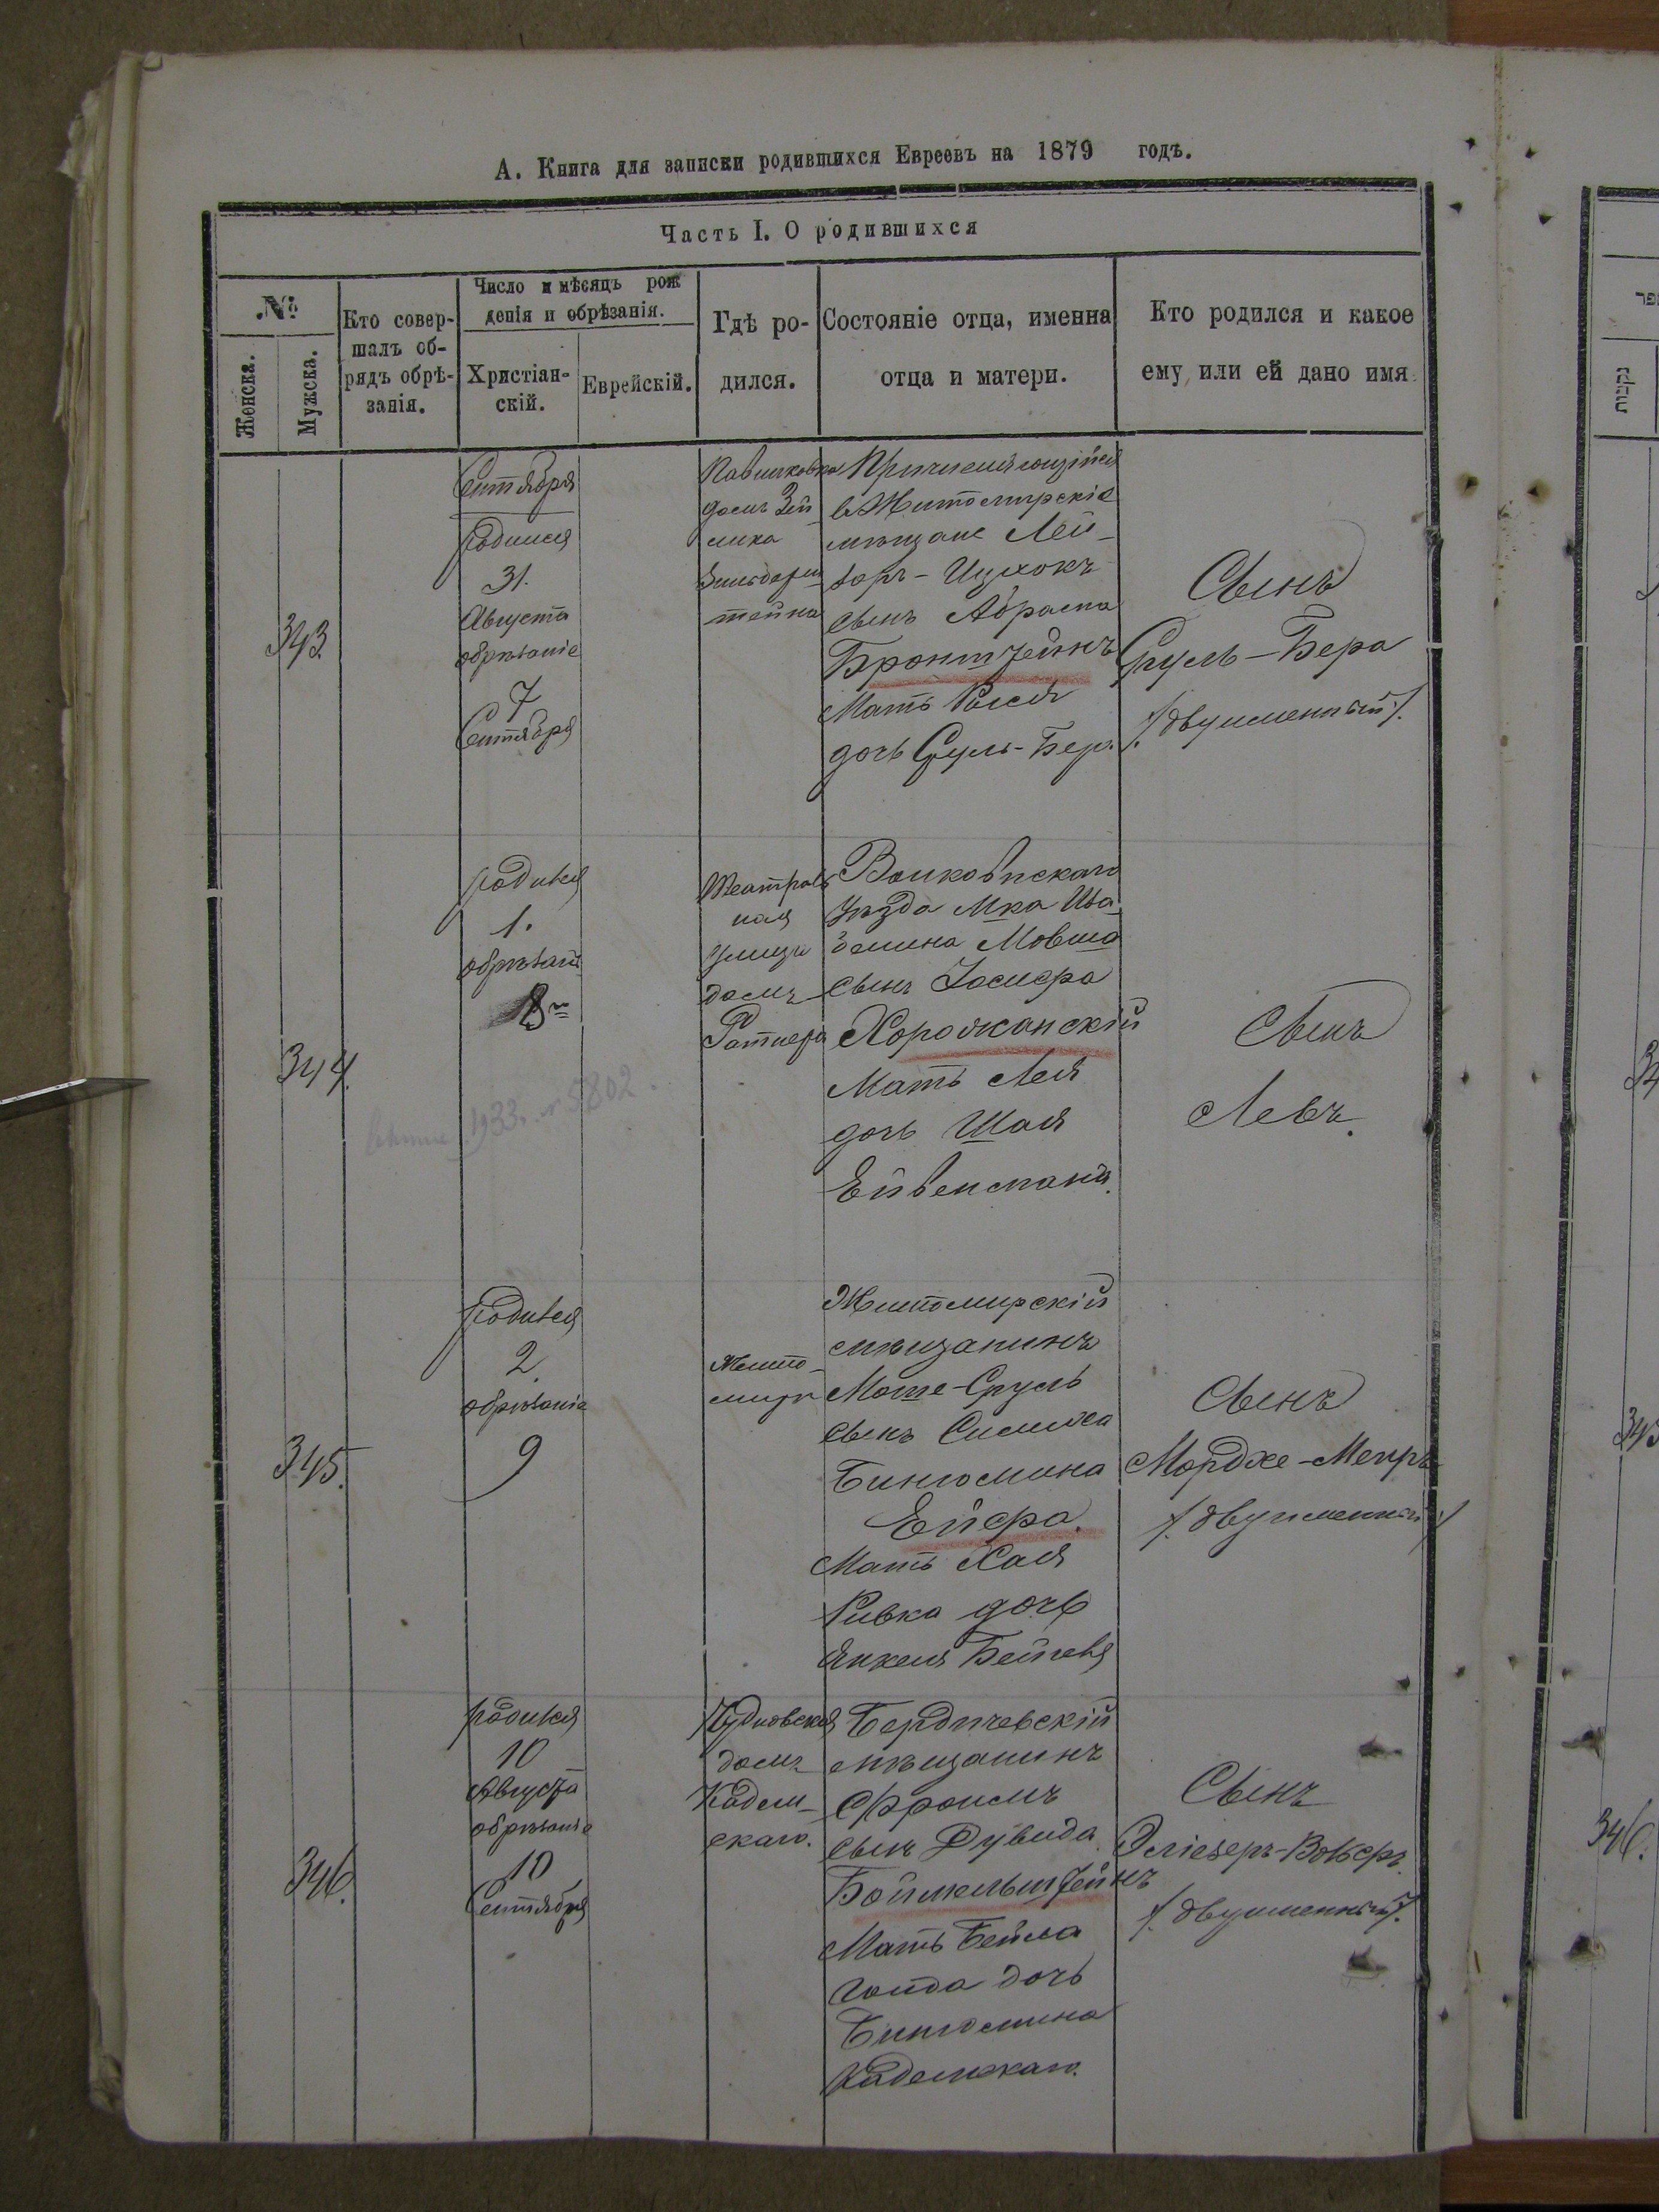 А. Книга для записки родившихся Евреевъ на 1879 годъ.
Часть I. О родившихся
№
Женска.
Мужска.
Кто совер-
шалъ об-
рядъ обрѣ-
занія.
Число и мѣсяцъ рож
денія и обрѣзанія.
Христіан-
скій.
Еврейскій.
Гдѣ ро-
дился.
Состояніе отца, именна
отца и матери.
Кто родился и какое
ему или ей дано имя
343
Сентября
родился
31.
Августа
обрѣзаніе
7
Сентября
домъ
Причисляющійся
в Житомирскіе
мѣщане Лей-
зоръ-Ицхокъ
сынъ Абрама
Бронштейнъ
Мать
дочь Сруль-Бера
Сынъ
Сруль-Бера
/.двуименный/.
344.
родился
1.
обрѣзаніе
8
Театраль
ная
улица
домъ
Ратнера
Волковискаго
уѣзда Мка
Мовша
сынъ Іосифа
Хорожанскій
Мать Лея
дочь Шая
Сынъ
Левъ.
1933 г. № 5802.
345.
родился
2
обрѣзаніе
9
Жито-
миръ
Житомирскій
мѣщанинъ
Моше-Сруль
сынъ Симхса
Бинюмина
Ейфра.
Мать Хая
Ривка дочь
Янкеля
Сынъ
Мордхе-Меиръ
/.двуименный/
346.
родился
10
Августа
обрѣзаніе
10
Сентября
Чудновская
домъ
Кадем-
скаго.
Бердичевскій
мѣщанинъ
Фроимъ
сынъ Дувида
Боймельштейнъ
Мать Бейла
Голда дочь
Бинюмина
Кадемскаго.
Сынъ
Эліезеръ-Вольфъ
/.двуименный/.
פר
נקבות
34
345
346.